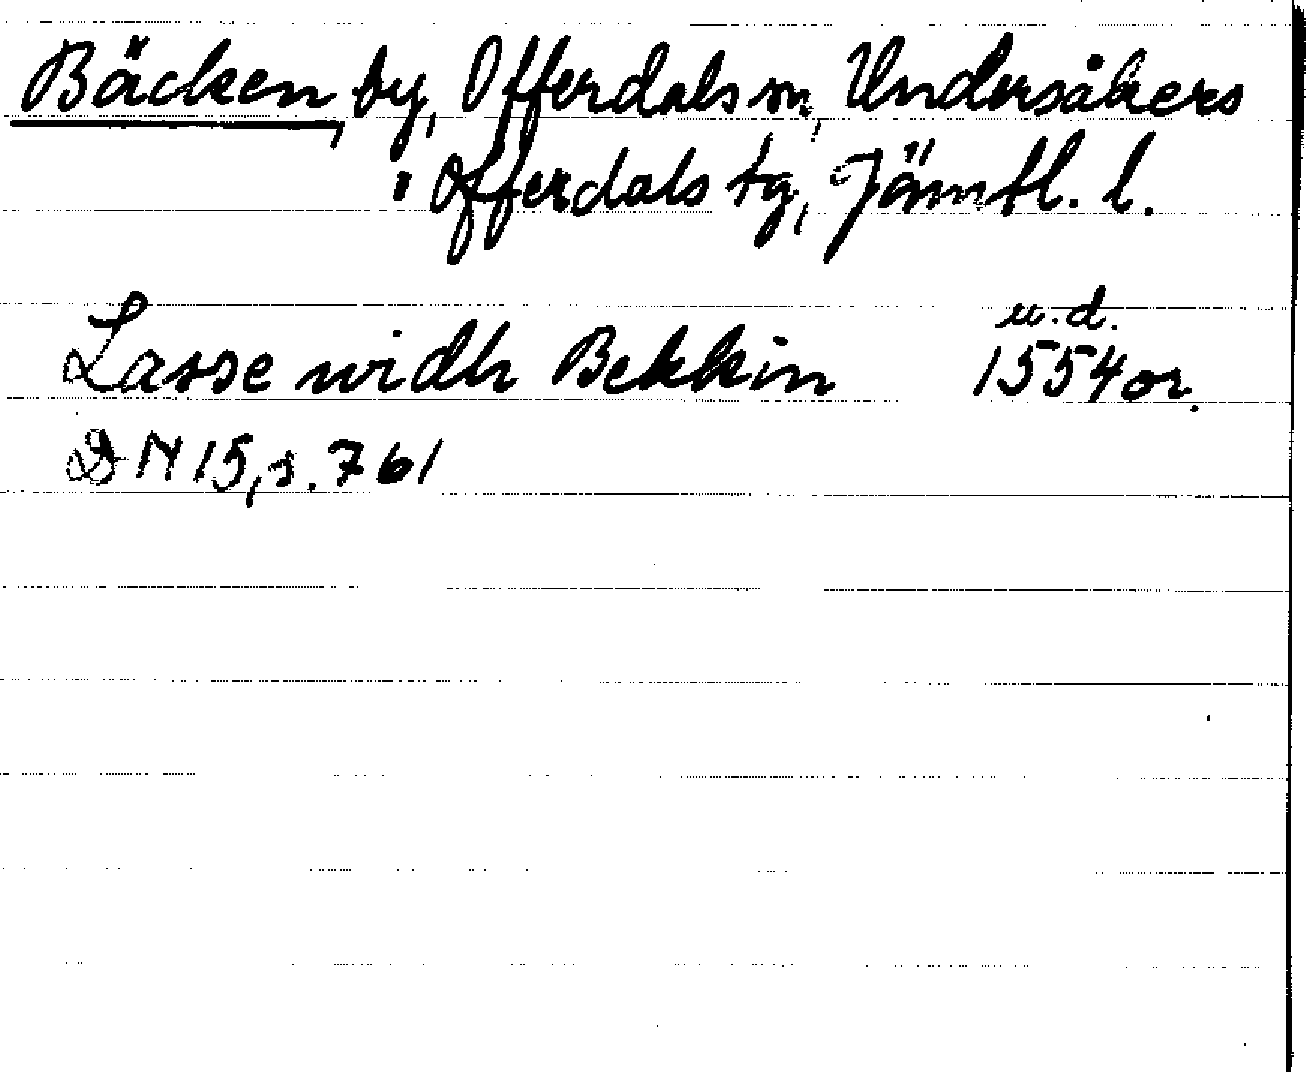 Bäcken, by, Offerdals sn, Undersåkers
o Offerdals tg, Jämtl. l.
u.d.
Lasse widh Bekkin 1554 or.
DN 15, s. 761